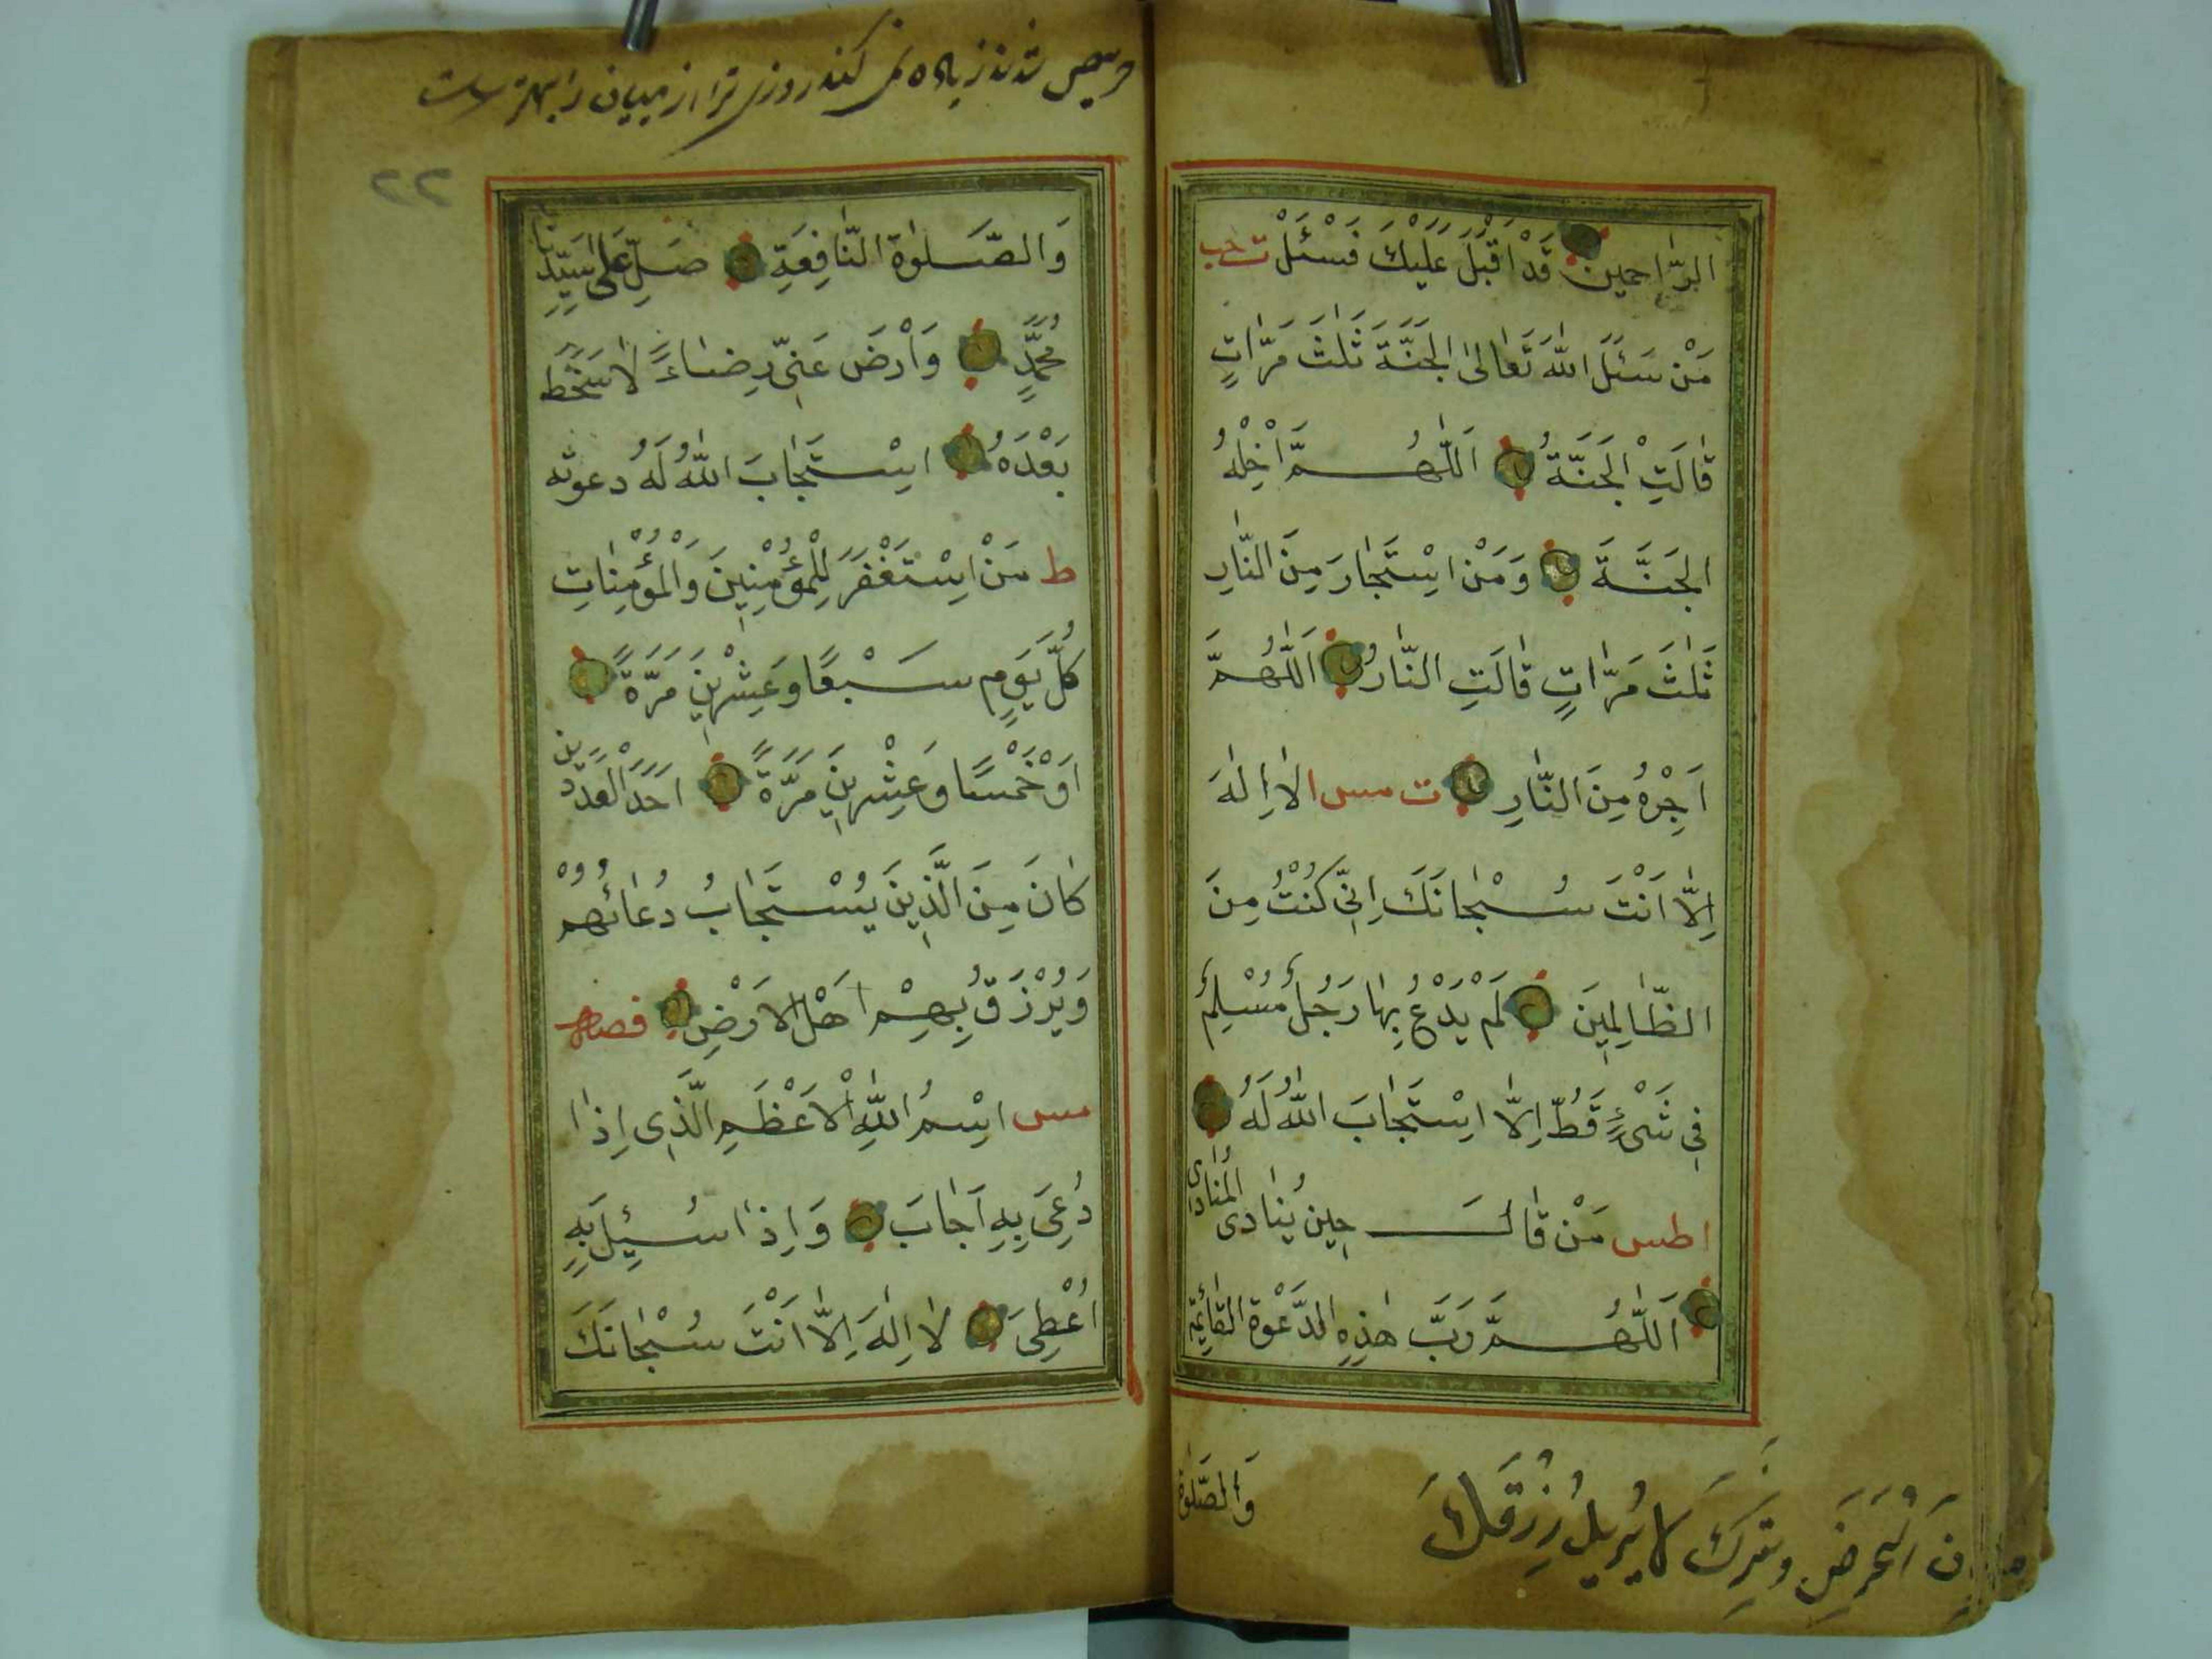 الرَّاحِمين قَدْ اَقْبَلَ عَلَيْكَ فَسْئَلْ ت حب
مَنْ سَئَلَ اللّٰهَ تَعَالٰى الجَنَّةَ ثَلٰثَ مَرَّاتٍ
قَالَتِ الْجَنَّةُ اَللّٰهُمَّ اَدْخِلْهُ
الجَنَّةَ وَمَنْ اسْتَجَارَ مِنَ النَّارِ
ثَلٰثَ مَرَّاتٍ قَالَتِ النَّارُ اَللّٰهُمَّ
اَجِرْهُ مِنَ النَّارِ ت مس لا اِلٰهَ
اِلَّا اَنْتَ سُبْحَانَكَ اِنّي كُنْتُ مِنَ
الظَّالِمِينَ لَمْ يَدْعُ بِهَا رَجُلٌ مُسْلِمٌ
فِي شَيْءٍ قَطُّ اِلَّا اسْتَجَابَ اللّٰهُ لَهُ
اطس مَنْ قَالَ حِين يُنَادى المُنَادى
اَللّٰهُمَّ رَبَّ هٰذِهِ الدَّعْوَة القَائِمَة
وَالصَّلٰوة
الْحَرَضَ وتَرِكَ لا يُرِيلُ رِزْقَكَ
حریص شدن زیاده نمی کند روزی ترا از میان را بهتر است
٢٢
وَالصَّلٰوة النَّافِعَةِ صَلِّ عَلَى سَيِّدِنا
مُحَمَّدٍ وَارْضَ عَنّي رِضَاءً لا سَخَطَ
بَعْدَهُ اسْتَجَابَ اللّٰهُ لَهُ دعوته
ط مَنْ اِسْتَغْفَرَ لِلْمُؤْمِنِينَ وَالْمُؤْمِنَاتِ
كُلَّ يَوْمٍ سَبْعًا وَعِشْرِينَ مَرَّةً
اَوْ خَمْسًا وَعِشْرِينَ مَرَّةً اَحَدَ الْعَدَدَيْن
كَانَ مِنَ الَّذِينَ يُسْتَجَابُ دُعَائُهُمْ
وَيُرْزَقُ بِهِمْ اَهْل الارْضِ
مس اسْمُ اللّٰهِ الْاَعْظَمِ الَّذِى اِذَا
دُعِىَ بِهِ اَجَابَ وَاِذَا سُئِلَ بِهِ
اُعْطِىَ لا اِلٰهَ اِلَّا اَنْتَ سُبْحَانَكَ